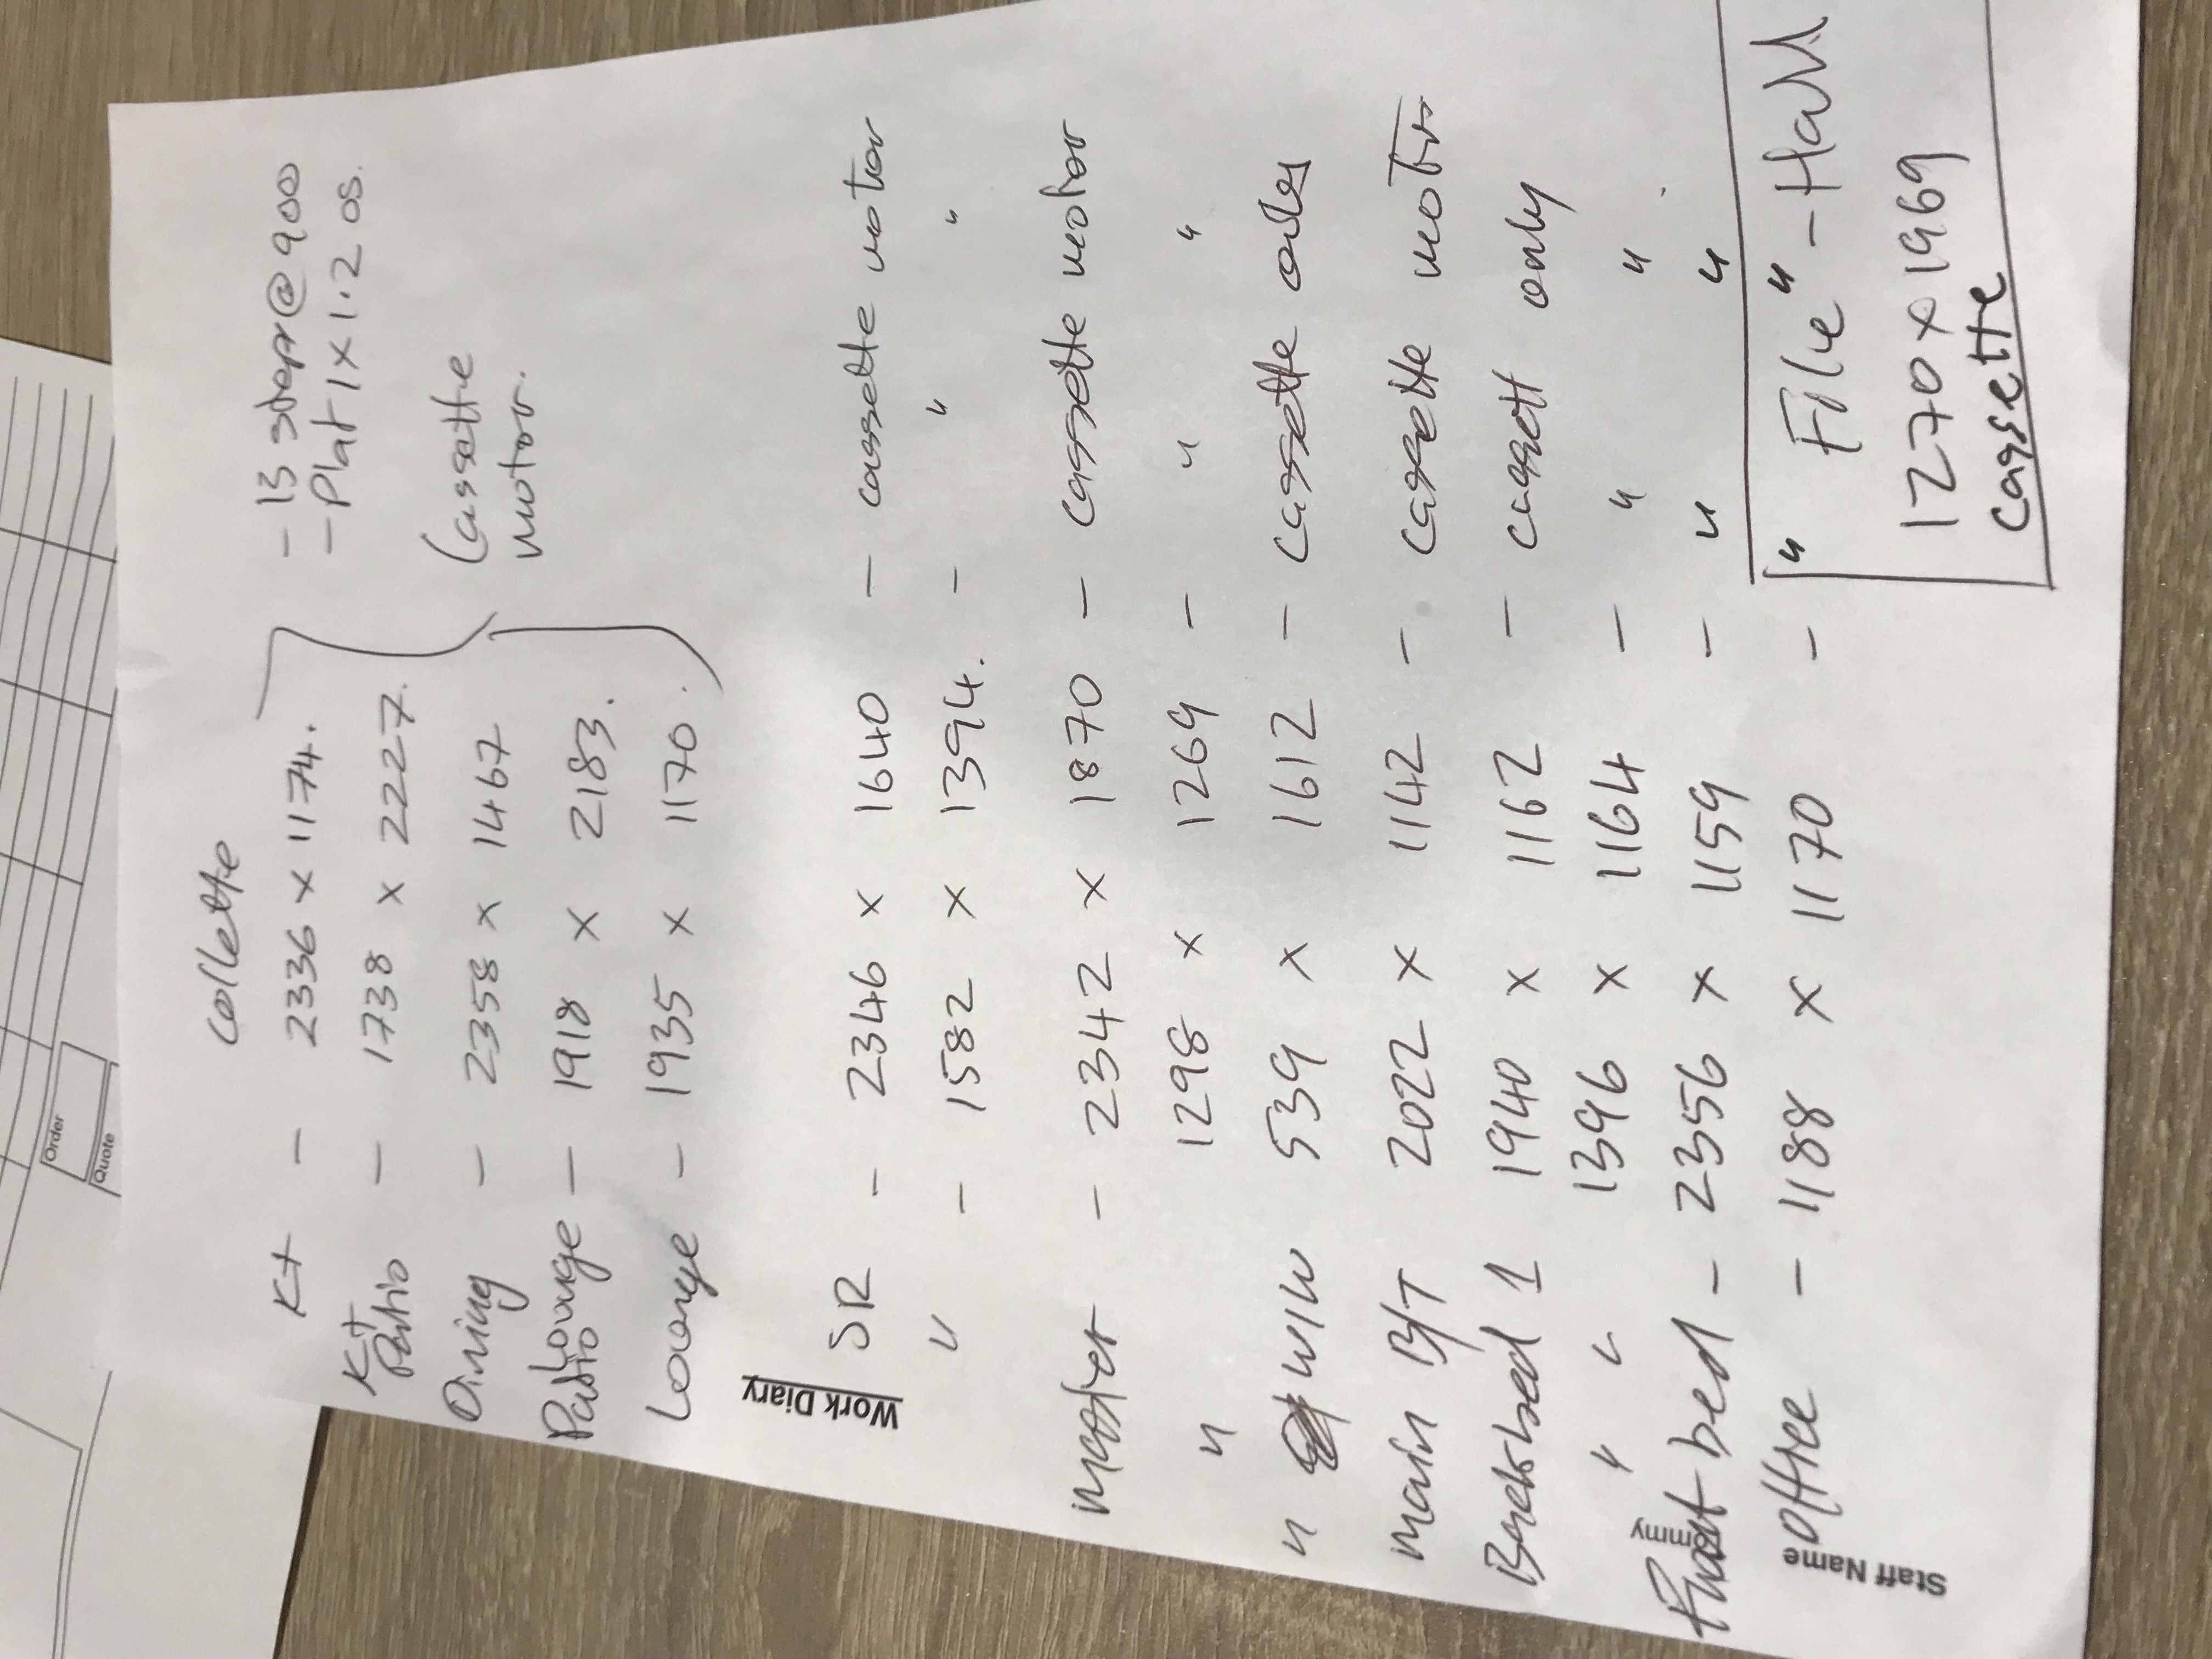 Collette
Kt - 2336 x 1174. - 13 steps @ 900
Kt Patio - 1738 x 2227. - Plat 1 x 1.2 os.
Dining - 2358 x 1467 Cassette
Lounge Patio - 1918 x 2183. motor.
Lounge - 1935 x 1170.
Work Diary
SR - 2346 x 1640 - cassette motor
" - 1582 x 1394. - " "
Master - 2342 x 1870 - cassette motor
" 1298 x 1269 - " "
" WIW 539 x 1612 - cassette only
Main B/T 2022 x 1142 - cassette motor
Back bed 1 1940 x 1162 - cassett only
" " 1396 x 1164 - " "
Front bed - 2356 x 1159 - " "
office - 1188 x 1170 - " "
Filie - Hall
1270 x 1969
cassette
Staff Name
Order
Quote